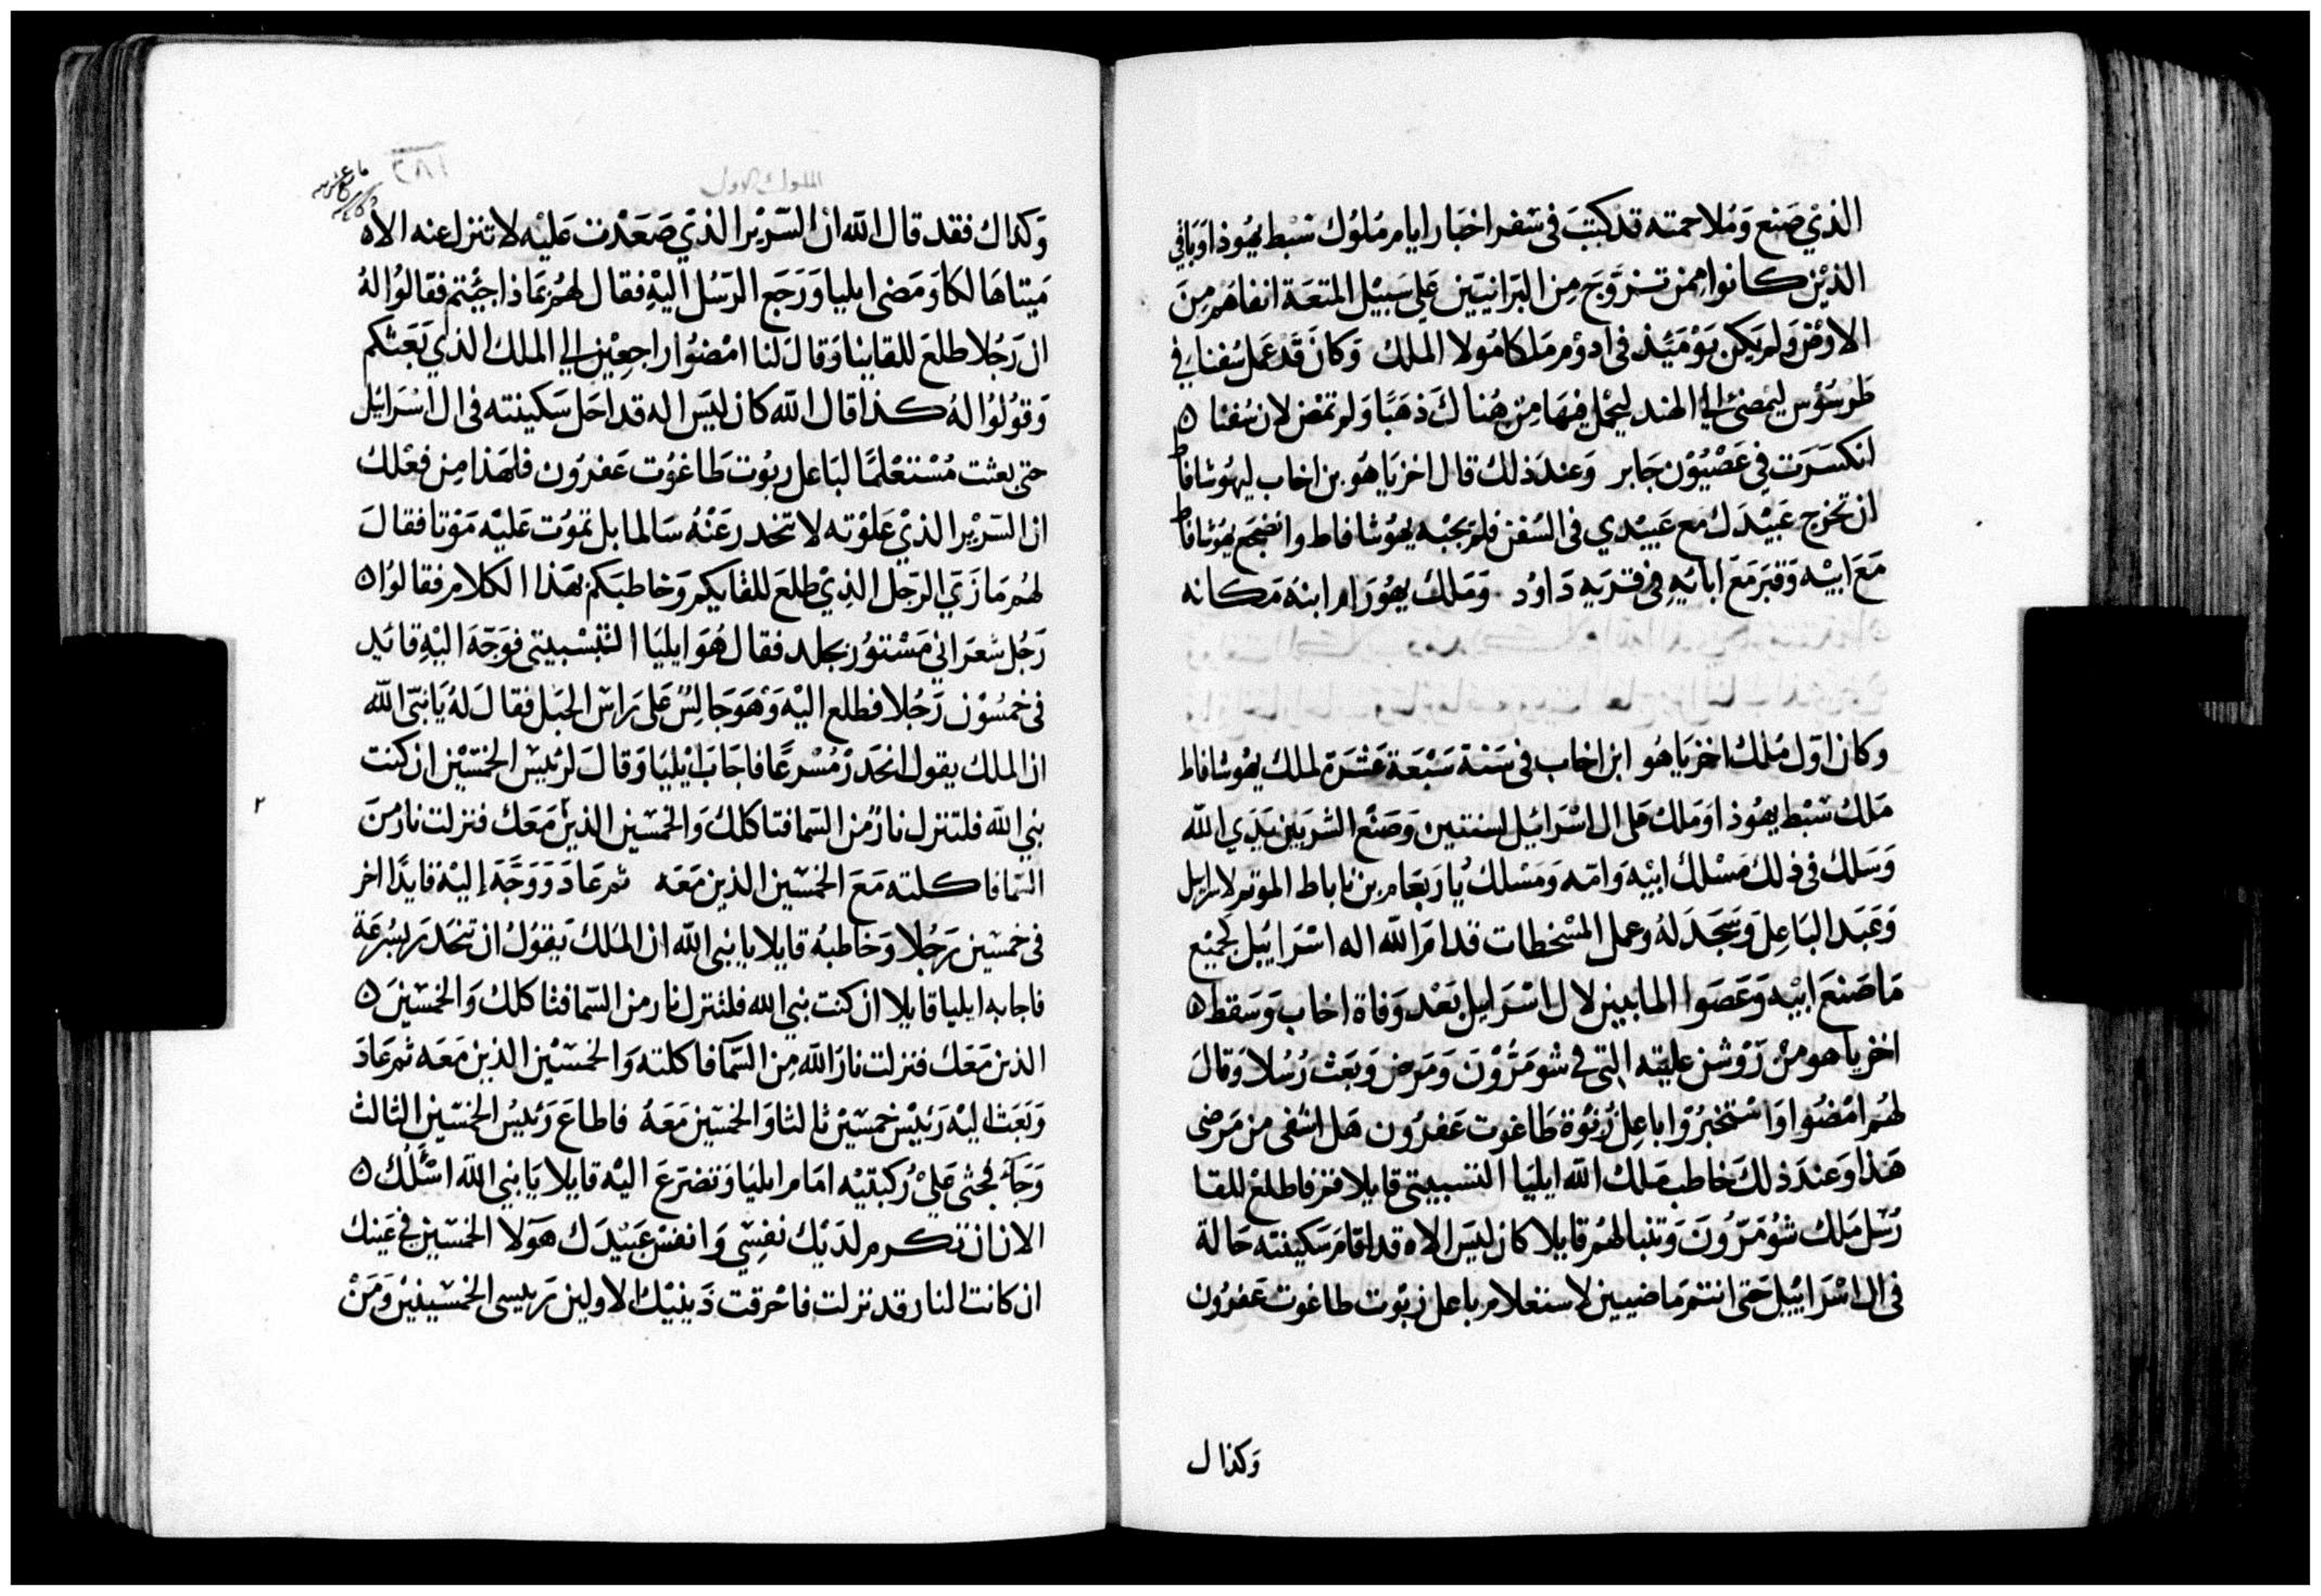 الذي صَنع وَمُلاحمته قد كتبَ في سفر اخبار ايام مُلوُك سْبط يهُوذا وَباقي
الذيْن كانوا ممن تزوَجَ من البَرانييَن عَلي سَبيْل المتعَة انفاهم مِنَ
الارْض وَلم يَكن يَوْمَئِذ في ادوُم مَلكا مُولا الملك وَكانَ قد عَمل سُفنا في
طرسُوْس ليمضيَ الي الهند ليُحمل فيهَا مِن هُناك ذهَبًا وَلم تمض لان سُفنا ه
انكسَرَت في عَصْيُوْن جَابر وَعندَ ذلك قال اخزيَاهُو بن اخاب ليهُوشافاط
ان تخرج عَبيْدَك مَع عَبيْدي في السُفن فلم يجبْه يهُوشافاط وانضجَع يهُوشافاط
مَع ابيْه وَقبرَ مَعَ ابائه في قريَه دَاوُد وَمَلك يهُوْرَام ابنهُ مَكانه
وكان اوّل مُلك اخزيَاهُو ابن اخاب في سَنة سَبْعَة عَشرَة لملك يهُوشافاط
مَلك سْبط يهُوذا وَملك عَلي ال اسْرَائيل لسنتين وَصَنَع الشر بَين يَدَي الله
وَسَلك في ذلك مَسْلك ابيْه وَامّه وَمَسْلك يُارَبعَام بن ناباط الموتم لاسرايل
وَعَبَد البَاعِل وَسَجَدَ لهُ وعمل المسْخطات قدامَ الله اله اسْرَائيل كجميْع
مَا صَنعَ ابيْه وَعَصَوا المابيين لال اسْرَايل بَعْد وَفاة اخاب وَسَقط ه
اخزياهو منْ رَوْشن عليّته التي في شومَرُوْن وَمَرض وَبَعَث رُسُلا وَقالَ
لهُم امْضُوا وَاسْتخبرُوْا باعِل زبُوْة طَاغوت عَفرُون هَل اشفى من مَرضي
هَذا وَعندَ ذلكَ خاطب مَلك الله ايليَا التشبيتي قايلا قم فاطلعْ للقا
رُسُل مَلك شوُمَرُونَ وَتنبا لهُم قايلا كان ليسَ الاه قد اقامَ سَكينته حَالة
في ال اسْرَائيل حَتى انتم مَاضيين لاستعلام باعل زبُوْت طاغوت عَفرُون
وَكذال
الملوك الاول
١٨٣
وَكذاك فقد قال الله ان السَريْر الذي صَعَدْت عَليْه لا تنزل عنه الا ه
مَيتا هَالكا وَمَضى ايليا وَرَجَع الرَسُل اليْهِ فقال لهُم بمَاذا جئتم فقالوُا لهُ
ال رَجُلا طلعَ للقاينا وَقالَ لنا امْضوُا راجعيْن الي الملك الذي بَعَثكم
وَقوُلوُا لهُ كذا قال الله كان ليسَ اله قد احَل سَكينته في ال اسْرَائيل
حتى بعثت مُسْتعْلمًا لبَاعل ربُوْت طَاغوُت عَفرُون فلهَذا مِن فعْلك
ان السَريْر الذيْ عَلوْته لا تنحدر عَنْهُ سَالما بل تموُت عَليْه مَوْتا فقالَ
لهُم مَا زيّ الرّجل الذِي طلعَ للقايكم وَخاطبَكم بهَذا الكلام فقالوُا ه
رَجُل شعرَاني مَسْتوُر بجلد فقال هُوَ ايليَا التشبيتي فوَجّهَ اليْهِ قائد
في خمسُوْن رَجُلا فطلع اليْه وَهوَ جَالِسٌ عَلي رَاس الجبَل فقالَ لهُ يَا نبيّ الله
ان الملك يقول انحَدرْ مُسْرعًا فاجَابَ ايْليَا وَقالَ لرَئيس الخمسْين ان كنت
نبي الله فلتنزل نارٌ من السَما فتاكلك وَالخمسَين الذيْن مَعَك فنزلت نار منَ
السَما فاكلته مَعَ الخمسَين الذين مَعَه ثم عَادَ وَوَجّهَ إليْه قايدًا اخر
في خمسين رَجُلا وَخاطبهُ قايلا يا نبي الله ان الملك يَقوُلُ ان تنحَدَر بسُرعَة
فاجابه ايليا قايلا ان كنت نبي الله فلتنزل نار من السّما فتاكلك وَالخمسْينَ ه
الذين مَعَك فنزلت نارَ الله مِن السَمَآ فاكلته وَالخمسْين الذين مَعَه ثم عَادَ
وَبَعَث اليْه رَئيْس خمسْينْ ثالثا وَالخمسَين مَعَهُ فاطاعَ رَئيسُ الخمسّين الثالث
وَجَآ فجثى عَليْ رُكبتيْه امَام ايليَا وَتضرّعَ اليْه قايلا يَا نبي الله اسْئَلك ه
الان ان تكرم لديْك نفسي وَانفس عَبيْدَك هَوَلا الخمسَين في عَينك
ان كانت النار قد نزلت فاحْرقت ذَينيْك الاولين رَيسي الخمسَينيْن وَمَنْ
٢